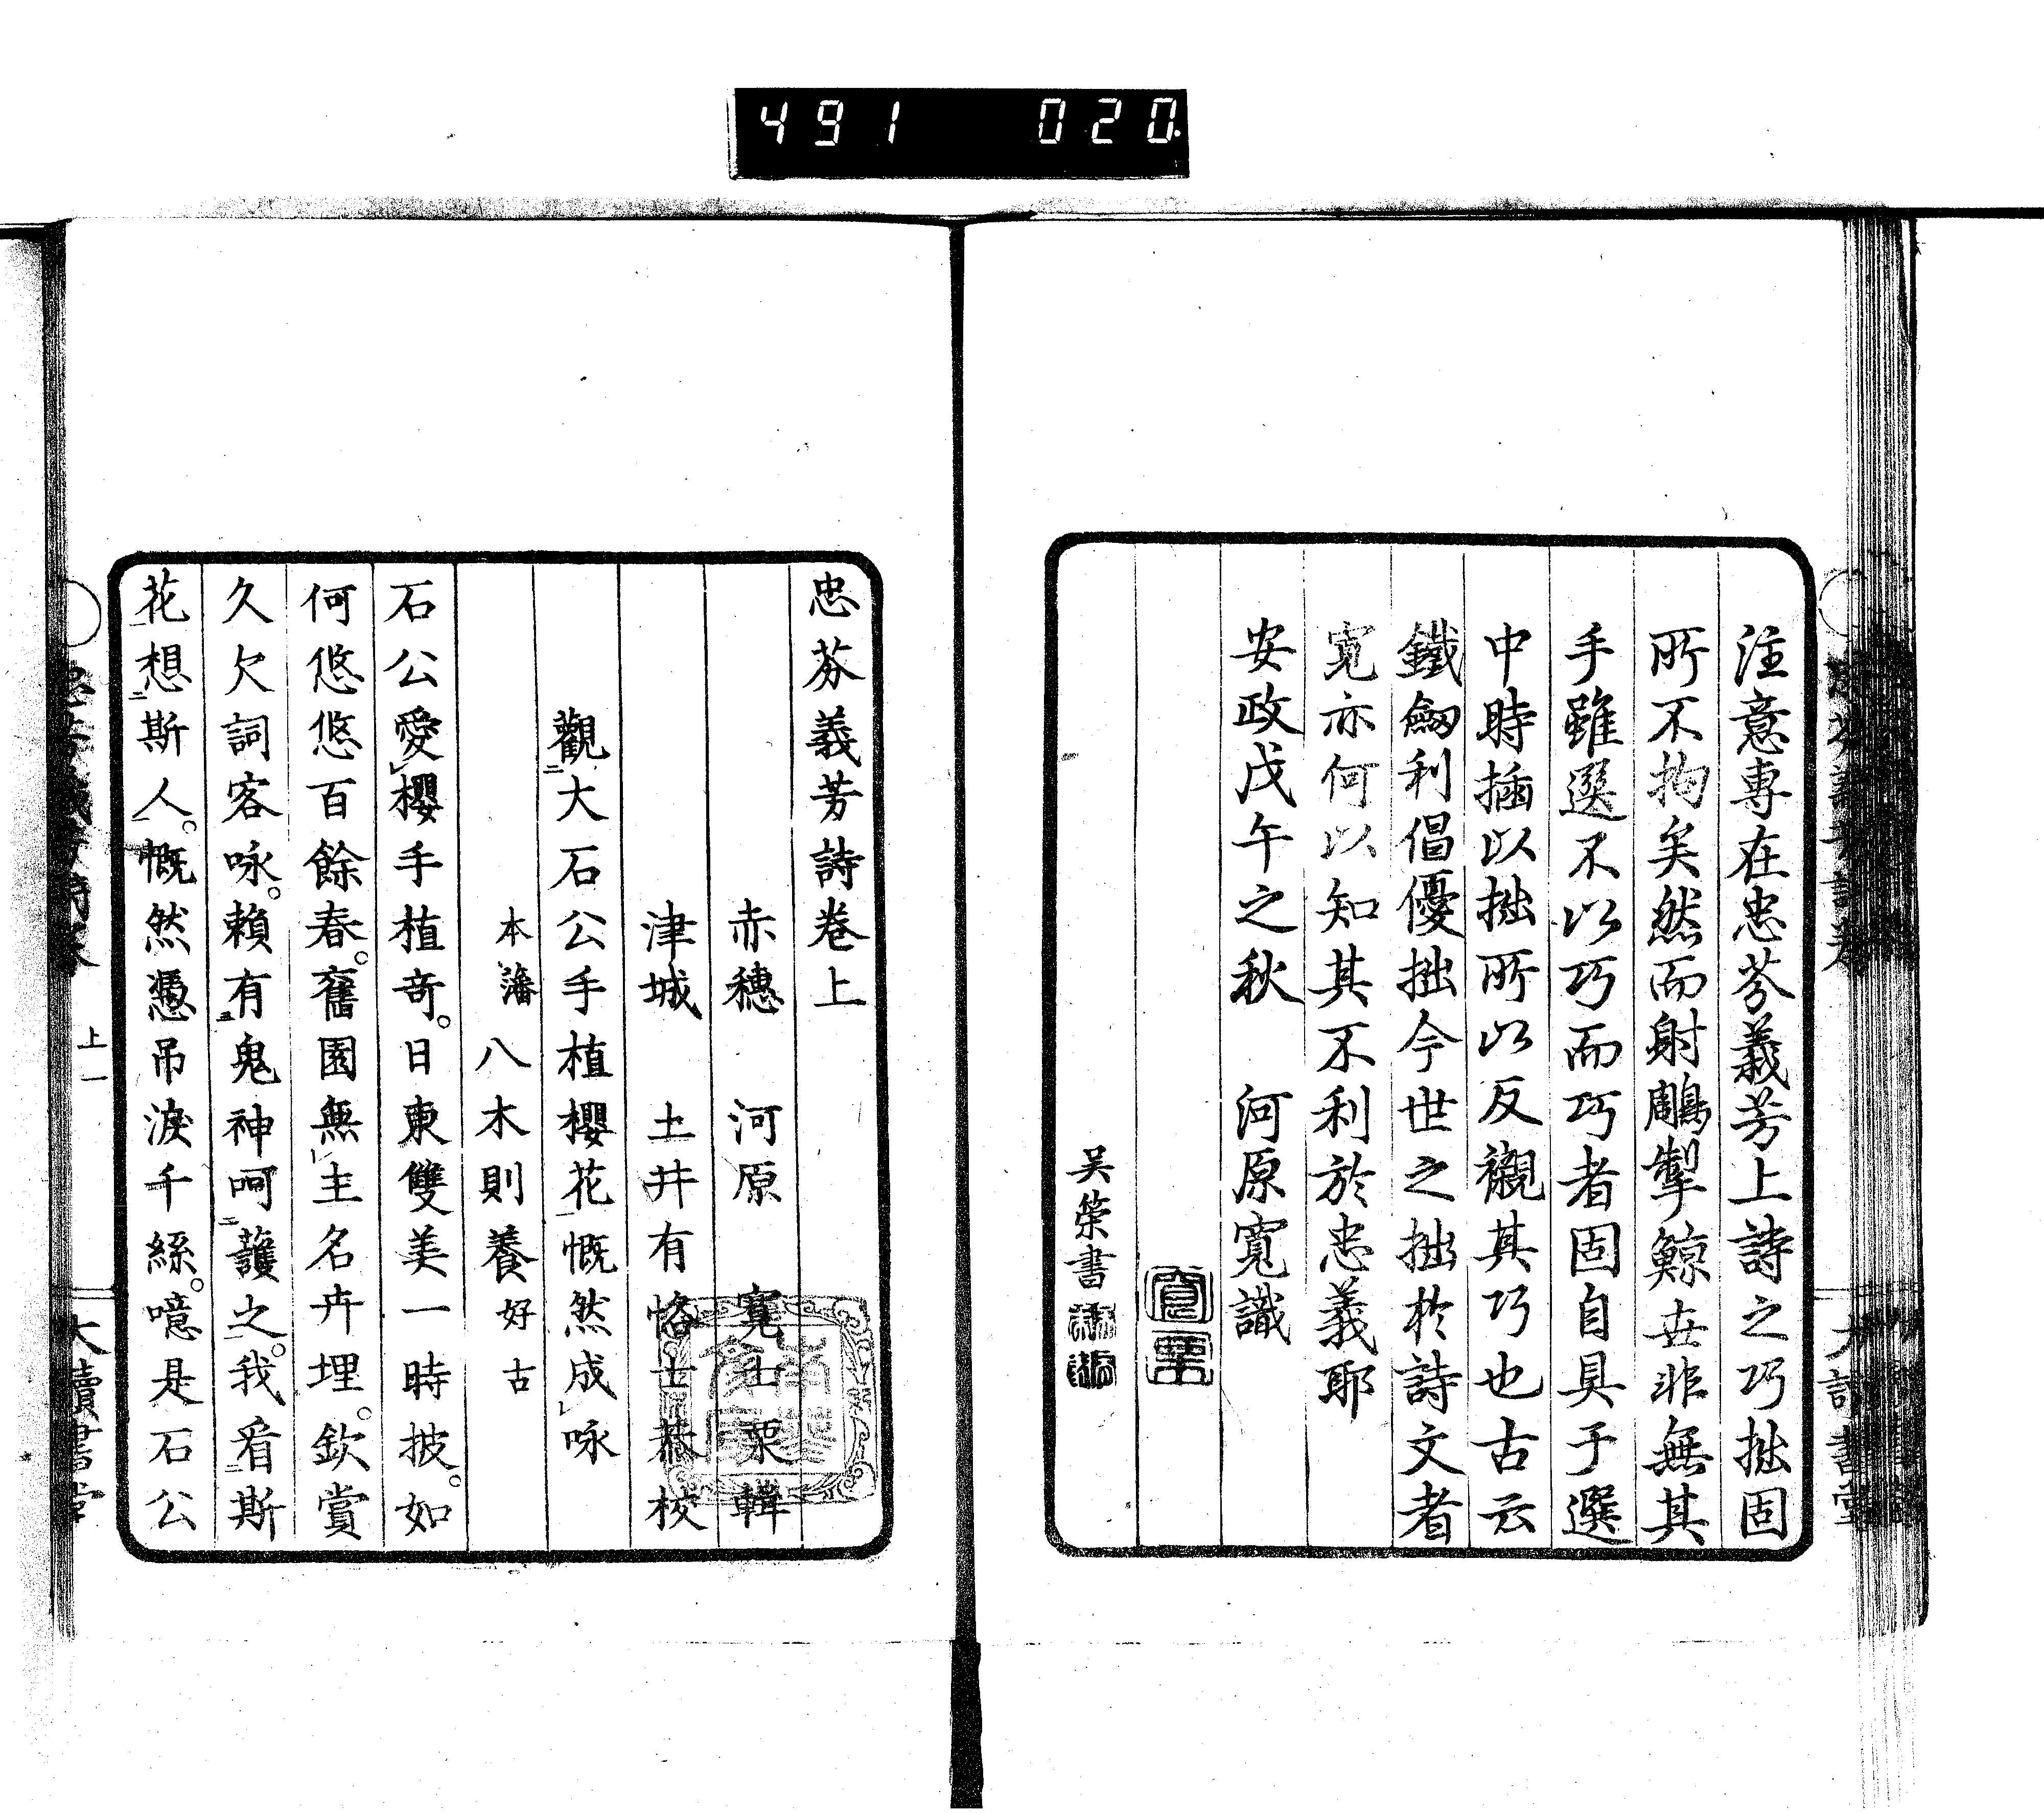 491 020
注意專在忠芬義芳上詩之巧拙固
所不拘矣然而射鵰掣鯨世非無其
手雖選不以巧而巧者固自具于選
中時插以拙所以反襯其巧也古云
鐵劒利倡優拙今世之拙於詩文者
寬亦何以知其不利於忠義耶
安政戊午之秋 河原寬識
吴榮書
忠芬義芳詩卷上
赤穗 河原 寬士栗輯
津城 土井有恪士恭校
觀大石公手植櫻花慨然成咏
本藩 八木則養 好古
石公愛櫻手植奇。日東雙美一時披。如
何悠悠百餘春。舊園無主名卉埋。欽賞
久欠詞客咏。賴有鬼神呵護之。我看斯
花想斯人。慨然憑吊淚千絲。噫是石公
上一